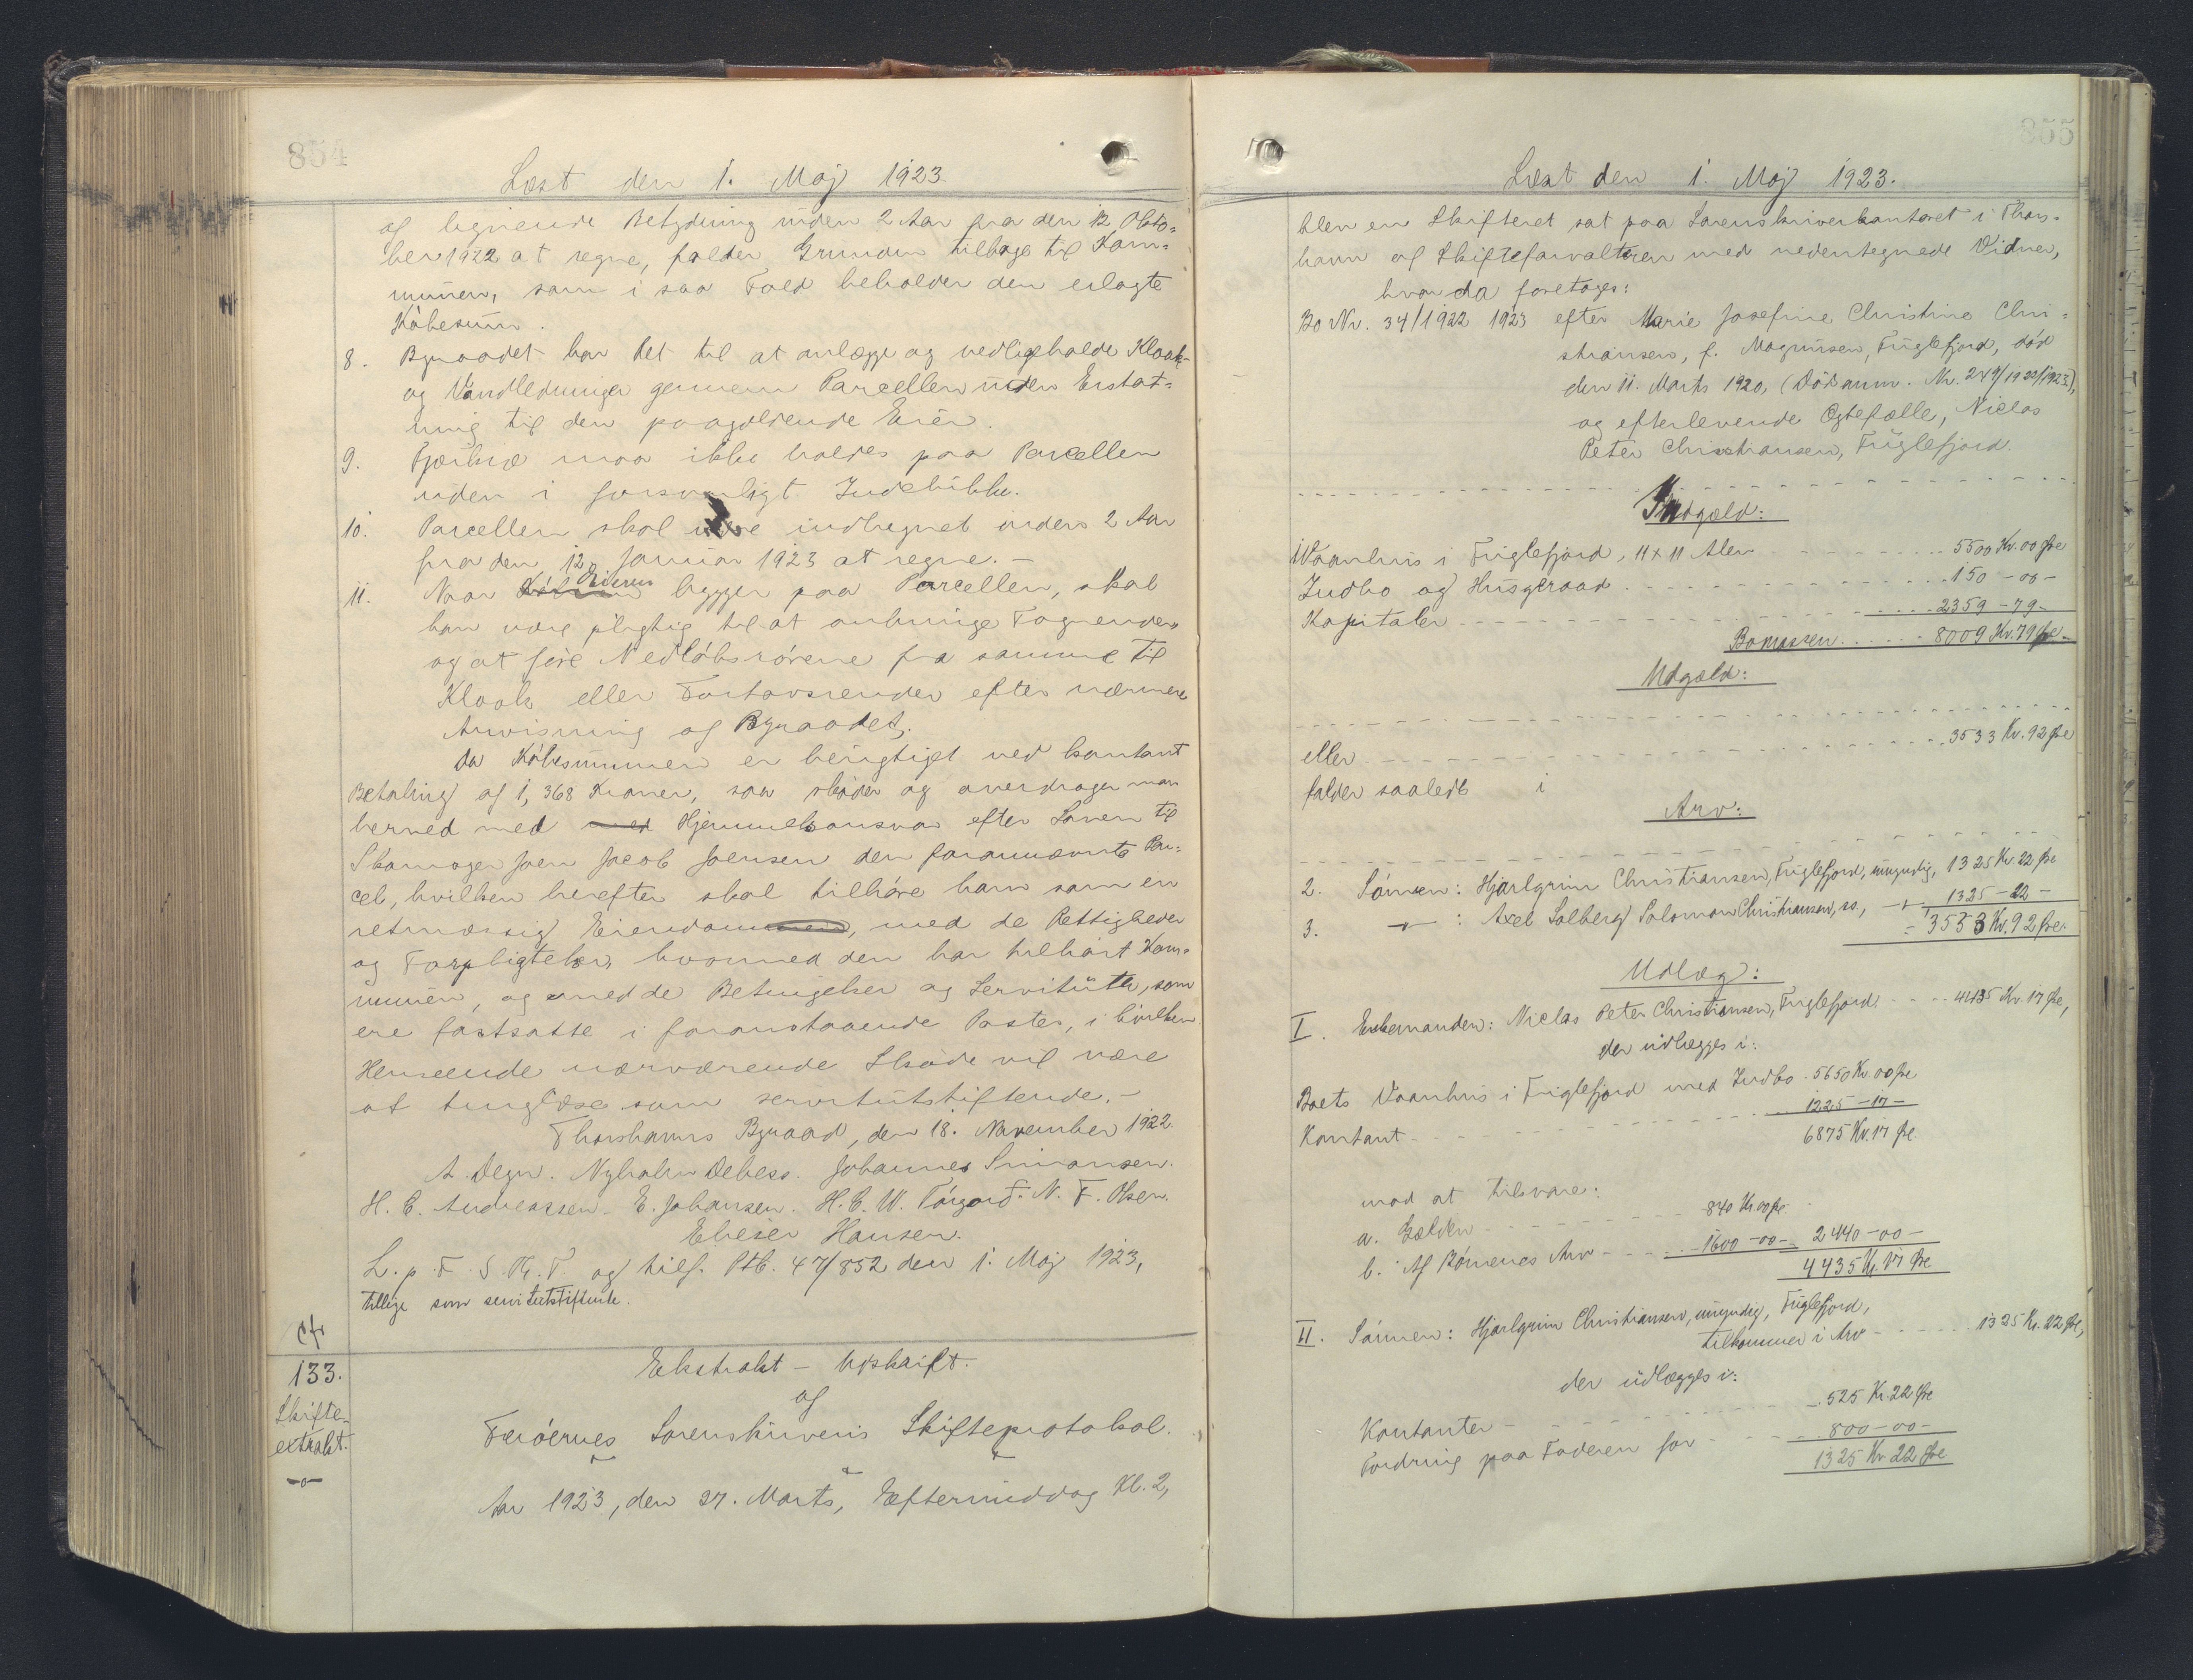 854
Læst den 1. Maj 1923.
af lignende Betydning inden 2 Aar fra den 12. Okto-
ber 1922 at regne, falder Grunden tilbage til Kom-
munen, som i saa Fald beholder den erlagte
Købesum.
8. Byraadet har Ret til at anlægge og vedligeholde Kloak-
og Vandledninger gennem Parcellen uden Erstat-
ning til den paagældende Ejer.
9. Fjerkræ maa ikke holdes paa Parcellen
uden i forsvarligt Indelukke.
10. Parcellen skal være indhegnet inden 2 Aar
fra den 12. Januar 1923 at regne. –
11. Naar Ejeren bygger paa Parcellen, skal
han være pligtig til at anbringe Tagrender
og at føre Nedløbsrørene fra samme til
Kloak eller Fortovsrender efter nærmere
Anvisning af Byraadet.
Da Købesummen er berigtiget ved kontant
Betaling af 1,368 Kroner, saa skøder og overdrager man
herved med Hjemmelsansvar efter Loven til
Skomager Joen Jacob Joensen den forannævnte Par-
cel, hvilken herefter skal tilhøre ham som en
retmæssig Eiendom, med de Rettigheder
og Forpligtelser, hvormed den har tilhørt Kom-
munen, og med de Betingelser og Servitutter, som
ere fastsatte i foranstaaende Poster, i hvilken
Henseende nærværende Skøde vil være
at tinglæse som servitutstiftende. –
Thorshavns Byraad, den 18. November 1922.
A. Degn. Nyholm Debess. Johannes Simonsen.
H. C. Andreassen. E. Johansen. H. C. W. Tórgarð. N. F. Olsen.
Elieser Hansen.
L. p. F. S. R. T. og tilf. Ptb. 47/852 den 1. Maj 1923,
tillige som servitutstiftende.
cfr
133.
Skifte-
extrakt.
-o-
Ekstrakt – Udskrift
af
Færøernes Sorenskriveris Skifteprotokol.
Aar 1923, den 27. Marts, Eftermiddag Kl. 2,
855
Læst den 1. Maj 1923.
blev en Skifteret sat paa Sorenskriverkontoret i Thors-
havn af Skifteforvalteren med nedentegnede Vidner,
hvor da foretoges:
Bo Nr. 34/1922 1923 efter Marie Josefine Christine Chri-
stiansen, f. Magnusen, Fuglefjord, død
den 11. Marts 1920, (Død anm. Nr. 249/1922/1923),
og efterlevende Ægtefælle, Niclas
Peter Christiansen, Fuglefjord.
Indgæld:
1 Vaanhus i Fuglefjord, 11 x 11 Alen 5500 Kr. 00 Øre
Indbo og Husgeraad 150 – 00 –
Kapitaler 2359 – 79 –
Bomassen 8009 Kr. 79 Øre.
Udgæld:
eller 3533 Kr. 92 Øre
falder saaledes i
Arv:
2. Sønnen: Hjarlgrim Christiansen, Fuglefjord, umyndig, 1325 Kr. 22 Øre
3. –"– : Axel Solberg Salomon Christiansen, ss., –"– 1325 – 22 –
= 3533 Kr. 92 Øre.
Udlæg:
I. Enkemanden: Niclas Peter Christiansen, Fuglefjord 4435 Kr. 17 Øre,
der udlægges i:
Boets Vaanhus i Fuglefjord med Indbo 5650 Kr. 00 Øre
Kontant 1225 – 17 –
6875 Kr. 17 Øre
mod at tilsvare:
a. Gælden 840 Kr. 00 Øre.
b. Af Børnenes Arv 1600 – 00 – 2440 – 00 –
4435 Kr. 17 Øre
II. Sønnen: Hjarlgrim Christiansen, umyndig, Fuglefjord,
tilkommer i Arv 1325 Kr. 22 Øre,
der udlægges i:
Kontanter 525 Kr. 22 Øre
Fordring paa Faderen for 800 – 00 –
1325 Kr. 22 Øre